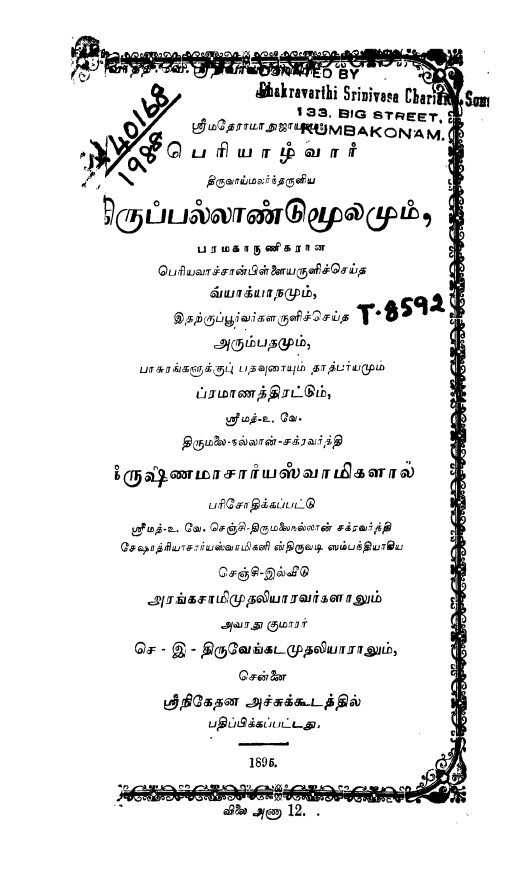 DONATED BY
Chakravarthi Srinivasa Chariar, Sons
133, BIG STREET,
KUMBAKONAM.
40168
1988
ஸ்ரீமதேராமாநுஜாயநம:
பெரியாழ்வார்
திருவாய்மலர்ந்தருளிய
திருப்பல்லாண்டுமூலமும்,
பரமகாருணிகரான
பெரியவாச்சான்பிள்ளையருளிச்செய்த
வ்யாக்யாநமும்,
இதற்குப்பூர்வர்களருளிச்செய்த
T-8592
அரும்பதமும்,
பாசுரங்களுக்குப் பதவுரையும் தாத்பர்யமும்
ப்ரமாணத்திரட்டும்,
ஸ்ரீமத்-உ. வே.
திருமலை-நல்லான்-சக்ரவர்த்தி
க்ருஷ்ணமாசார்யஸ்வாமிகளால்
பரிசோதிக்கப்பட்டு
ஸ்ரீமத்-உ. வே. செஞ்சி-திருமலைநல்லான் சக்ரவர்த்தி
சேஷாத்ரியாசார்யஸ்வாமிகளி ன்திருவடி ஸம்பந்தியாகிய
செஞ்சி-இல்வீடு
அரங்கசாமிமுதலியாரவர்களாலும்
அவரது குமாரர்
செ - இ - திருவேங்கடமுதலியாராலும்,
சென்னை
ஸ்ரீநிகேதன அச்சுக்கூடத்தில்
பதிப்பிக்கப்பட்டது.
விலை அணா 12.